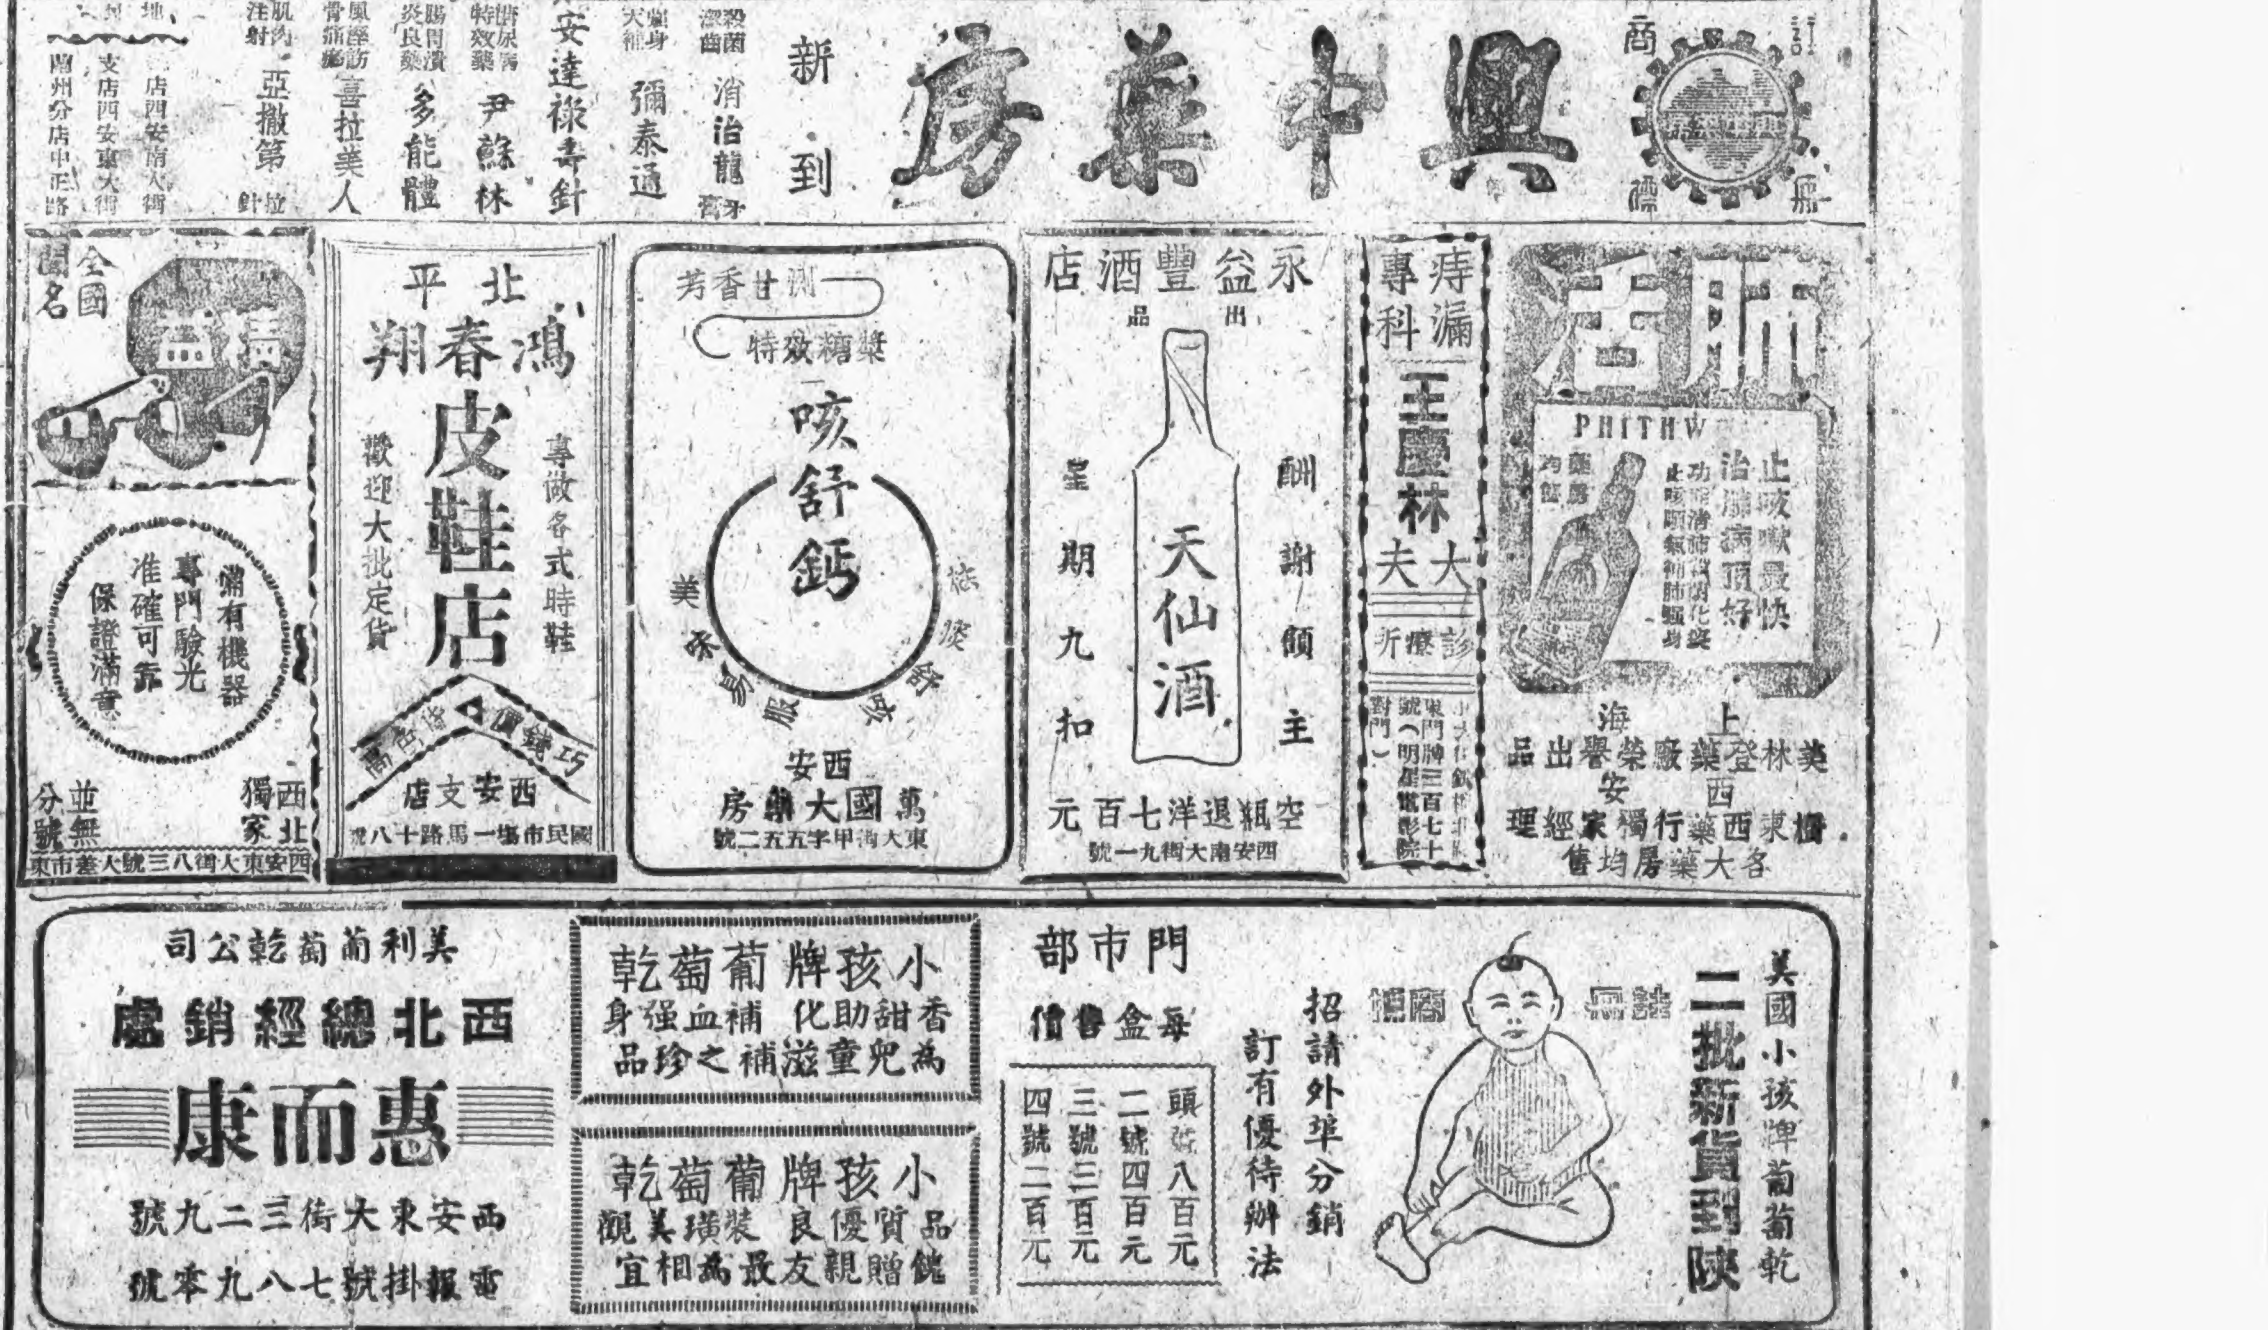 興中藥房
註冊
商標
新到
殺菌潔齒 消治龍 牙膏
彌泰通
安達祿壽針
特效藥 尹蘇林
腸胃潰炎良藥 多能體
喜拉美人
肌肉注射 亞撒第
店西安南大街
支店西安東大街
蘭州分店中正路
肺活
PHITHW
止咳嗽最快
治肺病頂好
藥房均售
上海
美林登藥廠榮譽出品
西安
樹東西藥行獨家經理
各大藥房均售
痔漏專科
王慶林
大夫
診療所
東門牌三百七十
號(明星電影院
對門)
永益豐酒店
出品
天仙酒
酬謝顧主
星期九扣
空瓶退洋七百元
西安南大街九一號
芳香甘潤
特效糖漿
咳舒鈣
西安
萬國大藥房
東大街甲字五五二號
北平
鴻春翔
皮鞋店
專做各式時鞋
歡迎大批定貨
巧錢價
貨色高
西安支店
國民市場一馬路十八號
全國聞名
精益
備有機器
專門驗光
准確可靠
保證滿意
西北獨家
並無分號
西安東大街八三號大差市東
美國小孩牌葡萄乾
二批新貨到陝
註冊
商標
招請外埠分銷
訂有優待辦法
門市部
每盒售價
頭號八百元
二號四百元
三號三百元
四號二百元
小孩牌葡萄乾
香甜助化 補血强身
為兒童滋補之珍品
小孩牌葡萄乾
品質優良 裝璜美觀
餽贈親友最為相宜
美利葡萄乾公司
西北總經銷處
惠而康
西安東大街三二九號
電報掛號七八九零號